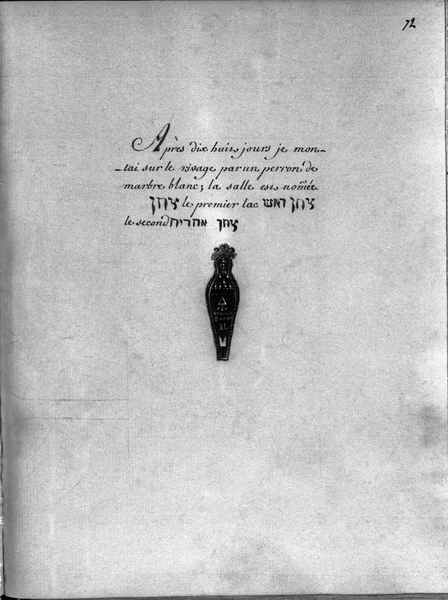 Après dix huit jours je mon-
-tai sur le rivage par un perron de
marbre blanc; la salle est nomée
צחן le premier lac צחן ראש
le second צחן אחרית
72